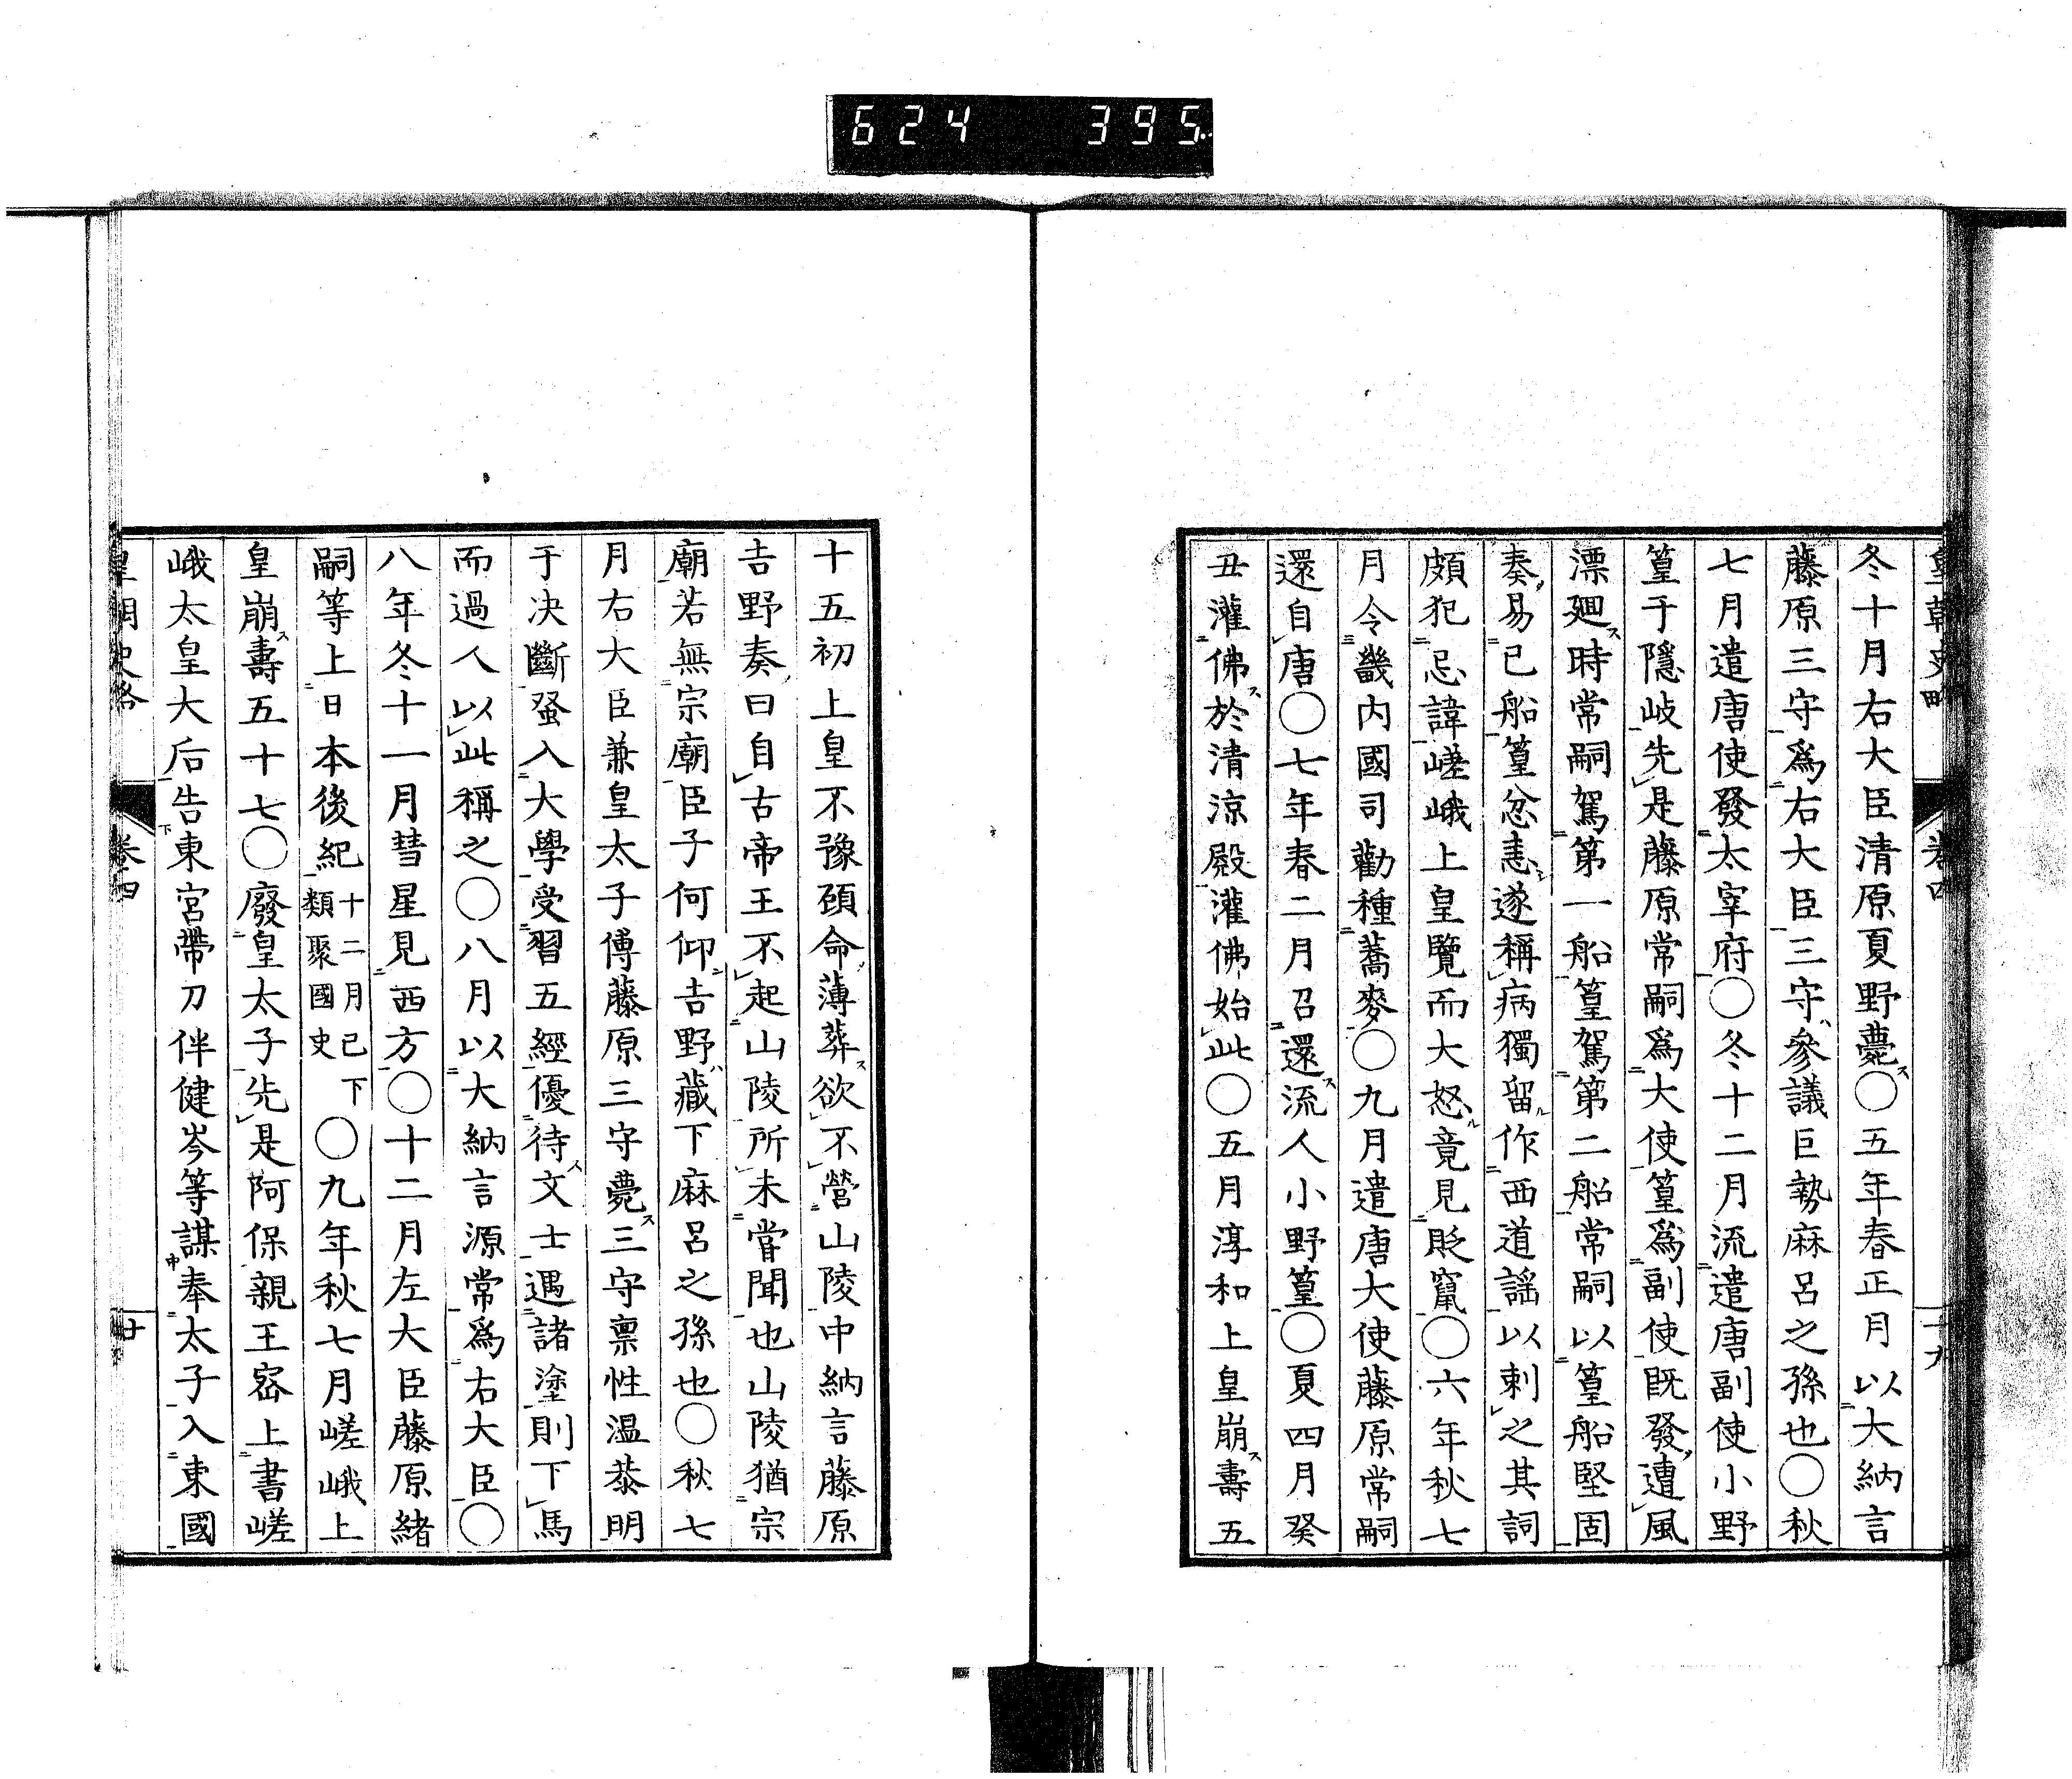 624 395
皇朝史略 卷四 十九
冬十月右大臣清原夏野薨○五年春正月以大納言
藤原三守爲右大臣三守參議巨勢麻呂之孫也○秋
七月遣唐使發太宰府○冬十二月流遣唐副使小野
篁于隱岐先是藤原常嗣爲大使篁爲副使既發遭風
漂廻時常嗣駕第一船篁駕第二船常嗣以篁船堅固
奏易已船篁忿恚遂稱病獨留作西道謡以刺之其詞
頗犯忌諱嵯峨上皇覽而大怒竟見貶竄○六年秋七
月令畿内國司勸種蕎麥○九月遣唐大使藤原常嗣
還自唐○七年春二月召還流人小野篁○夏四月癸
丑灌佛於清涼殿灌佛始此○五月淳和上皇崩壽五
十五初上皇不豫頋命薄葬欲不營山陵中納言藤原
吉野奏曰自古帝王不起山陵所未嘗聞也山陵猶宗
廟若無宗廟臣子何仰吉野藏下麻呂之孫也○秋七
月右大臣兼皇太子傅藤原三守薨三守禀性温恭明
于决斷蚤入大學受習五經優待文士遇諸塗則下馬
而過人以此稱之○八月以大納言源常爲右大臣○
八年冬十一月彗星見西方○十二月左大臣藤原緒
嗣等上日本後紀十二月已下類聚國史○九年秋七月嵯峨上
皇崩壽五十七○廢皇太子先是阿保親王密上書嵯
峨太皇大后告東宮帶刀伴健岑等謀奉太子入東國
皇朝史略 卷四 廿